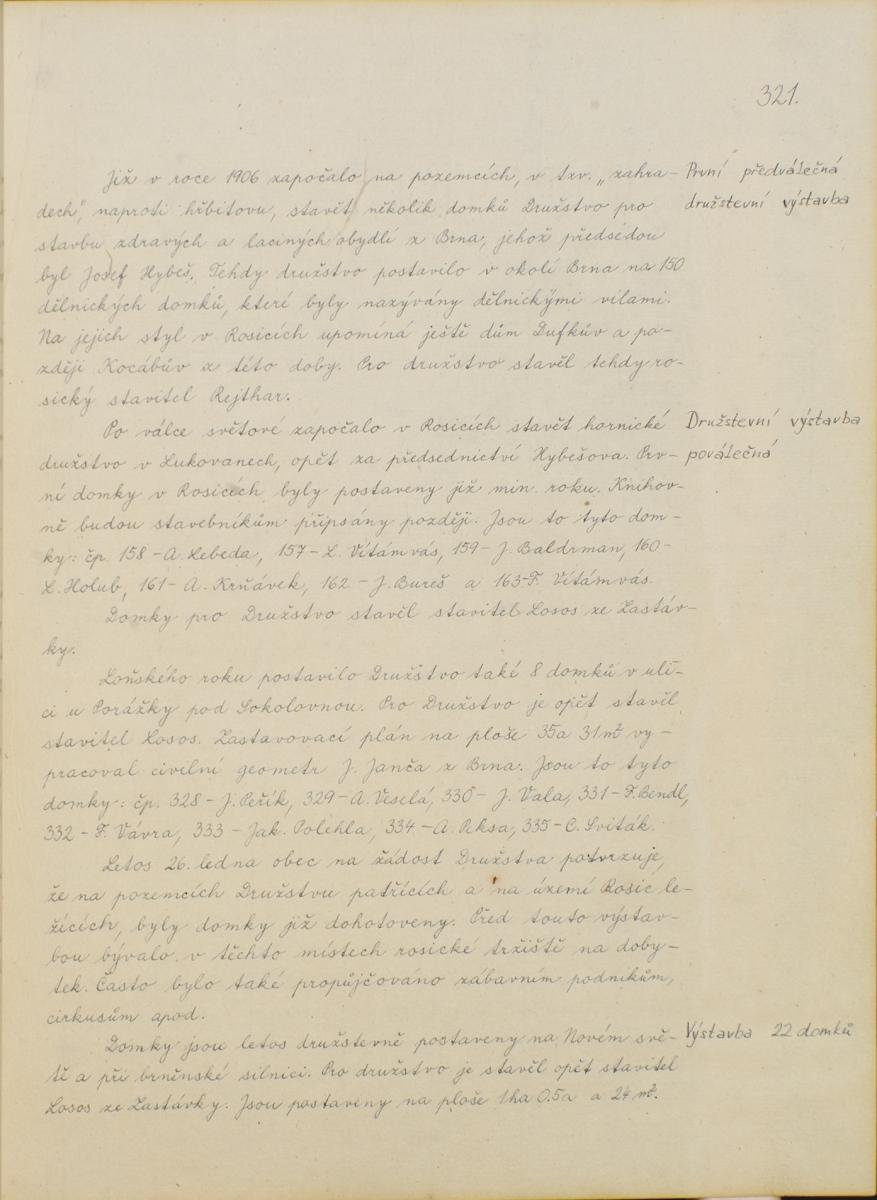 321.
Již v roce 1906 započalo na pozemcích, v tzv. „zahra-
dech", naproti hřbitovu, stavět několik domků Družstvo pro
stavbu zdravých a laciných obydlí z Brna, jehož předsedou
byl Josef Hybeš. Tehdy družstvo postavilo v okolí Brna na 150
dělnických domků, které byly nazývány dělnickými vilami.
Na jejich styl v Rosicích upomíná ještě dům Dufkův a po-
zději Kocábův z této doby. Pro družstvo stavěl tehdy ro-
sický stavitel Rejthar.
První předválečná
družstevní výstavba
Po válce světové započalo v Rosicích stavět hornické
družstvo v Lukovanech, opět za předsednictví Hybešova. Prv-
ní domky v Rosicích byly postaveny již min. roku. Knihov-
ně budou stavebníkům připsány později. Jsou to tyto dom-
ky: čp. 158 - A. Lebeda, 157 - L. Vítámvás, 159 - J. Baldrman, 160 -
L. Holub, 161 - A. Krňávek, 162 - J. Bureš a 163 - F. Vítámvás.
Družstevní výstavba
poválečná
Domky pro Družstvo stavěl stavitel Losos ze Zastáv-
ky.
Loňského roku postavilo Družstvo také 8 domků v uli-
ci u Porážky pod Sokolovnou. Pro Družstvo je opět stavěl
stavitel Losos. Zastavovací plán na ploše 35a 31 m² vy-
pracoval civilní geometr J. Janča z Brna. Jsou to tyto
domky: čp. 328 - J. Peřík, 329 - A. Veselá, 330 - J. Vala, 331 - F. Bendl,
332 - F. Vávra, 333 - Jak. Polehla, 334 - A. Peksa, 335 - C. Sviták.
Letos 26. ledna obec na žádost Družstva potvrzuje,
že na pozemcích Družstvu patřících a na území Rosic le-
žících, byly domky již dohotoveny. Před touto výstav-
bou bývalo v těchto místech rosické tržiště na doby-
tek. Často bylo také propůjčováno zábavním podnikům,
cirkusům apod.
Domky jsou letos družstevně postaveny na Novém svě-
tě a při brněnské silnici. Pro družstvo je stavěl opět stavitel
Losos ze Zastávky. Jsou postaveny na ploše 1ha 0.5a a 24 m².
Výstavba 22 domků